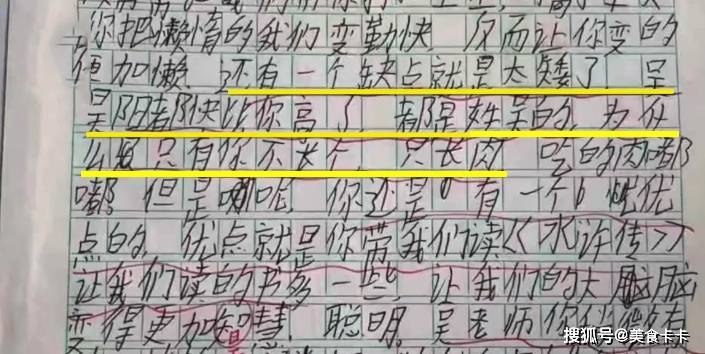 你把懒惰的我们变勤快，反而让你变的
更加懒，还有一个缺点就是太矮了，吴
昊阳都快比你高了，都是姓吴的，为什
么就只有你不长个，只长肉，吃的肉嘟
嘟，但是呢，你还是有一个优
点的，优点就是你带我们读《水浒传》
让我们读的书多一些，让我们的大脑脑
变得更加聪明，吴老师你
搜狐号@美食卡卡